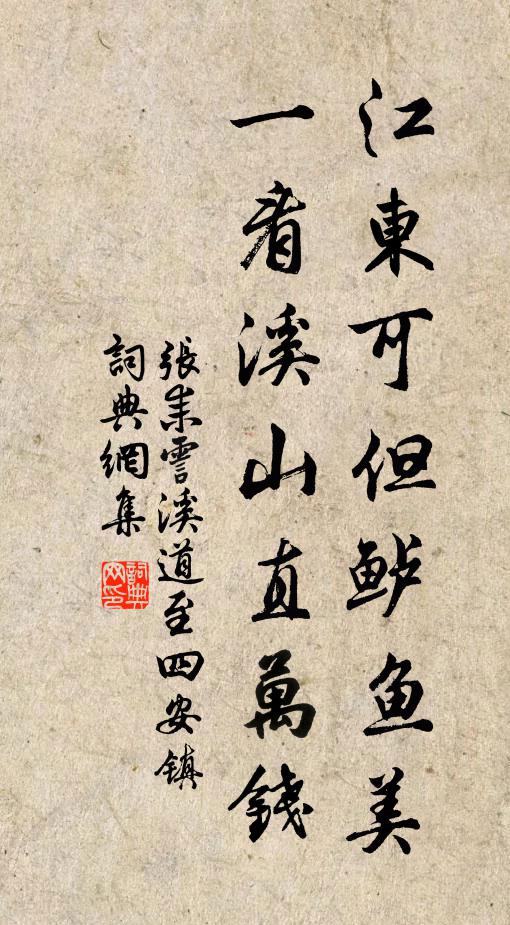 江東可但鲈鱼美
一看溪山直萬錢
張耒霅溪道至四安鎮
詞典網集
詞典网印